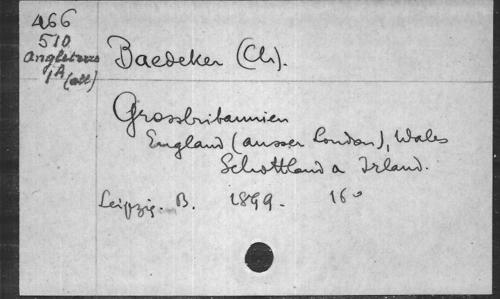 466
510
Angleterre
1A (all)
Baedeker (Ch).
Grossbritannien
England (ausser London), Wales
Schottland a Irland.
Leipzig. B. 1899. 16°